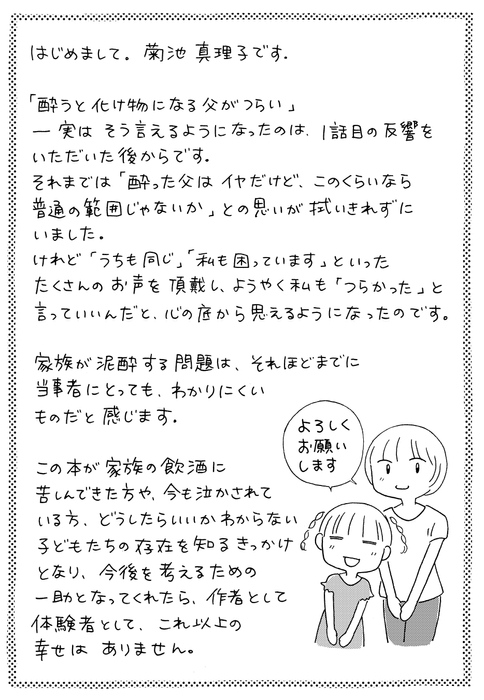 はじめまして。菊池 真理子です.
「酔うと化け物になる父がつらい」
― 実は そう言えるようになったのは、1話目の反響を
いただいた後からです.
それまでは「酔った父は イヤだけど、このくらいなら
普通の範囲じゃないか」との思いが 拭いきれずに
いました.
けれど「うちも同じ」「私も困っています」といった
たくさんの お声を 頂戴し、ようやく私も「つらかった」と
言っていいんだと、心の底から思えるようになったのです。
家族が 泥酔する問題は、それほどまでに
当事者にとっても、わかりにくい
ものだと 感じます.
この本が家族の飲酒に
苦しんできた方や、今も泣かされて
いる方、どうしたらいいかわからない
子どもたちの存在を知るきっかけ
となり、今後を考えるための
一助となってくれたら、作者として
体験者として、これ以上の
幸せは ありません。
よろしく
お願い
します